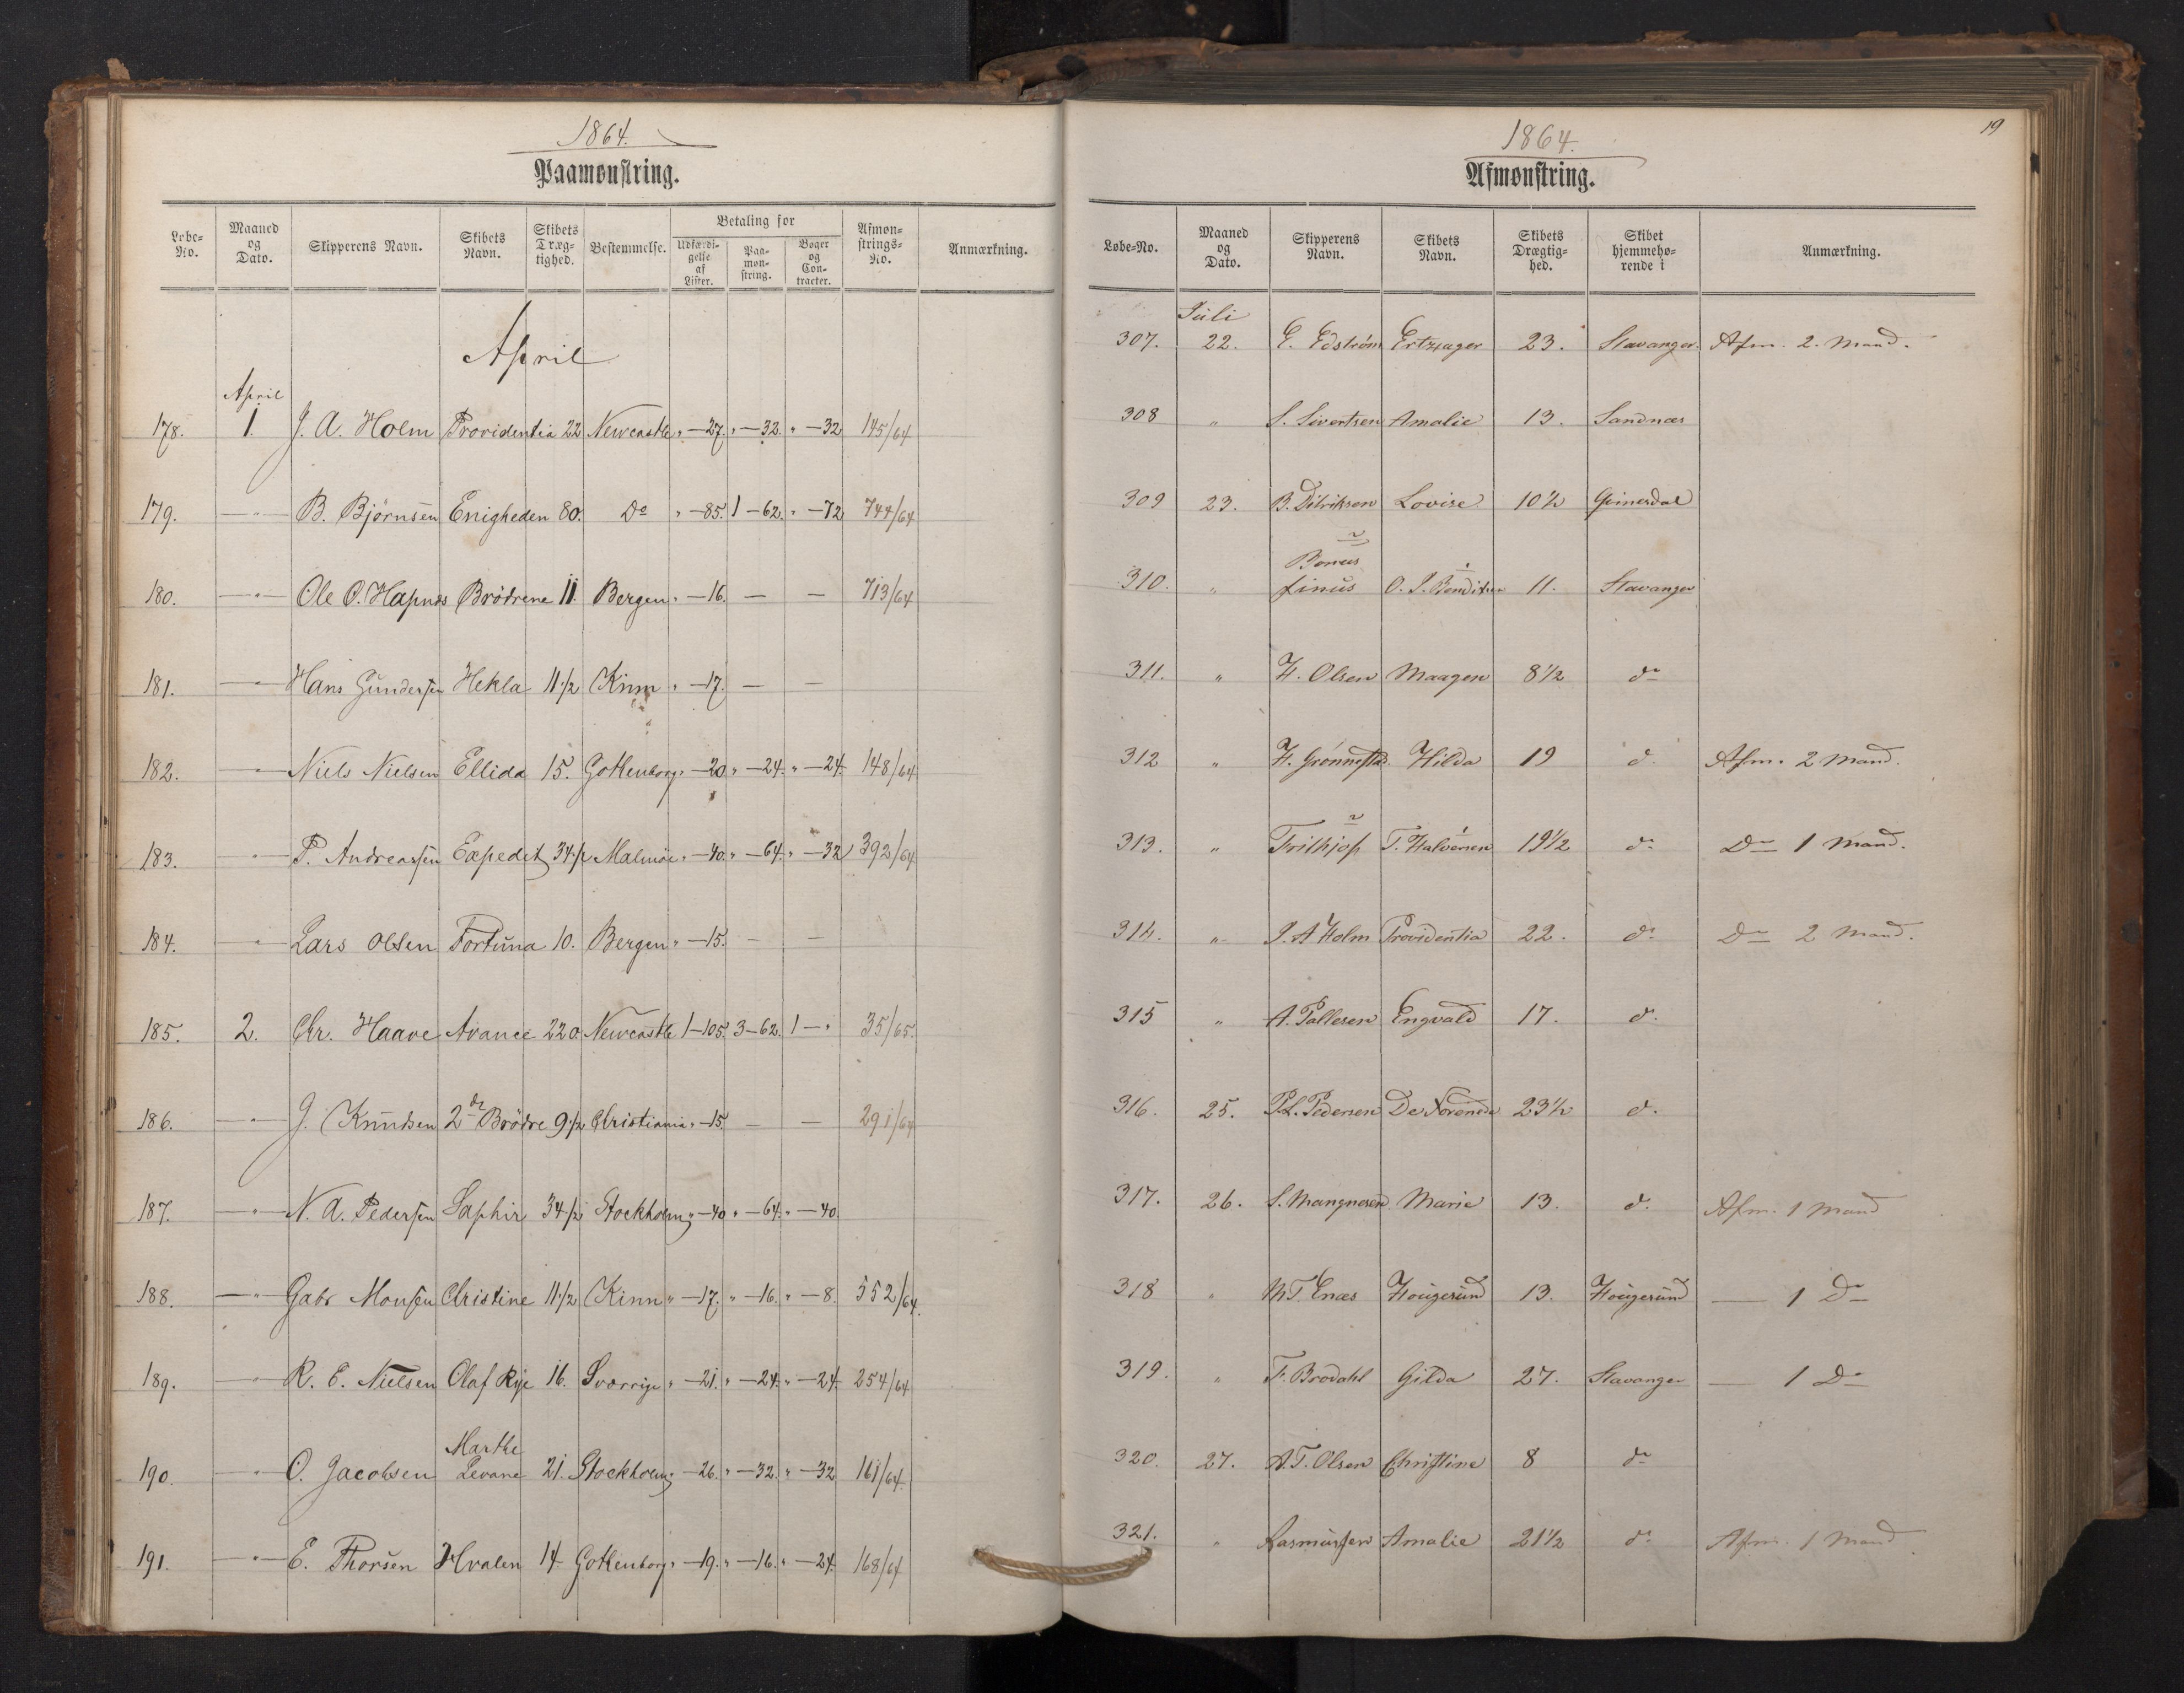 1864.
Paamønstring.
Løbe-No. Maaned og Dato. Skipperens Navn. Skibets Navn. Skibets Dræg-tighed. Bestemmelse. Betaling for Udfærdi-gelse af Lister. Paa-møn-string. Bøger og Con-tracter. Afmøn-strings-No. Anmærkning.
April
April
178. 1. J. A. Holm Providentia 22 Newcastle " — 27. " — 32. " — 32 145/64
179. —"— B. Bjørnsen Enigheden 80. Do " — 85. 1 — 62. " — 72 744/64
180. —"— Ole O. Hapnes Brödrene 11. Bergen " — 16. — — 713/64
181. —"— Hans Gundersen Hekla 11 1/2 Kinn " — 17. — —
182. —"— Niels Nielsen Ellida 15. Gothenborg " — 20. " — 24. " — 24. 148/64
183. —"— P. Andreassen Expedit 34 1/2 Malmöe " — 40. " — 64. " — 32 392/64
184. —"— Lars Olsen Fortuna 10. Bergen " — 15. — —
185. 2. Chr. Haave Avance 220. Newcastle 1 — 105. 3 — 62. 1 — " 35/65.
186. —"— J. Knudsen 2de Brödre 9 1/2 Christiania " — 15. — — 291/64
187. —"— N. A. Pedersen Saphir 34 1/2 Stockholm " — 40 " — 64. " — 40
188. —"— Gabr Monsen Christine 11 1/2 Kinn " — 17. " — 16. " — 8. 552/64.
189. —"— R. E. Nielsen Olaf Rye 16. Sverrige " — 21. " — 24. " — 24. 254/64
190. —"— O. Jacobsen Marthe Levane 21. Stockholm " — 26. " — 32. " — 32 161/64
191. —"— E. Thorsen Hvalen 14 Gothenborg " — 19. " — 16. " — 24. 168/64
19
1864.
Afmønstring.
Løbe-No. Maaned og Dato. Skipperens Navn. Skibets Navn. Skibets Drægtig-hed. Skibet hjemmehø-rende i Anmærkning.
Juli
307. 22. E. Edström Ertzjager 23. Stavanger. Afm. 2. Mand.
308 " S. Sivertsen Amalie 13. Sandnæs
309 23. B. Didriksen Lovise 10 1/2
310. " Bonus finus O. J. Benditsen 11. Stavanger
311. " H. Olsen Maagen 8 1/2 do
312 " H. Grönnestad Hilda 19 d. Afm. 2 Mand.
313. " Frithjof T. Halversen 19 1/2 do Do 1 Mand.
314. " J. A Holm Providentia 22. do Do 2 Mand.
315 " A. Pallesen Engvald 17. d.
316. 25. P. L. Pedersen De Forenede 23 1/2 d.
317. 26. S. Mangnesen Marie 13. d. Afm. 1 Mand
318 " M T. Enæs Hougesund 13. Hougesund — 1 Do
319. " F. Brodahl Gilda 27. Stavanger — 1 Do
320. 27. A. T. Olsen Christine 8 do
321. " Rasmussen Amalie 21 1/2 do Afm. 1 Mand.